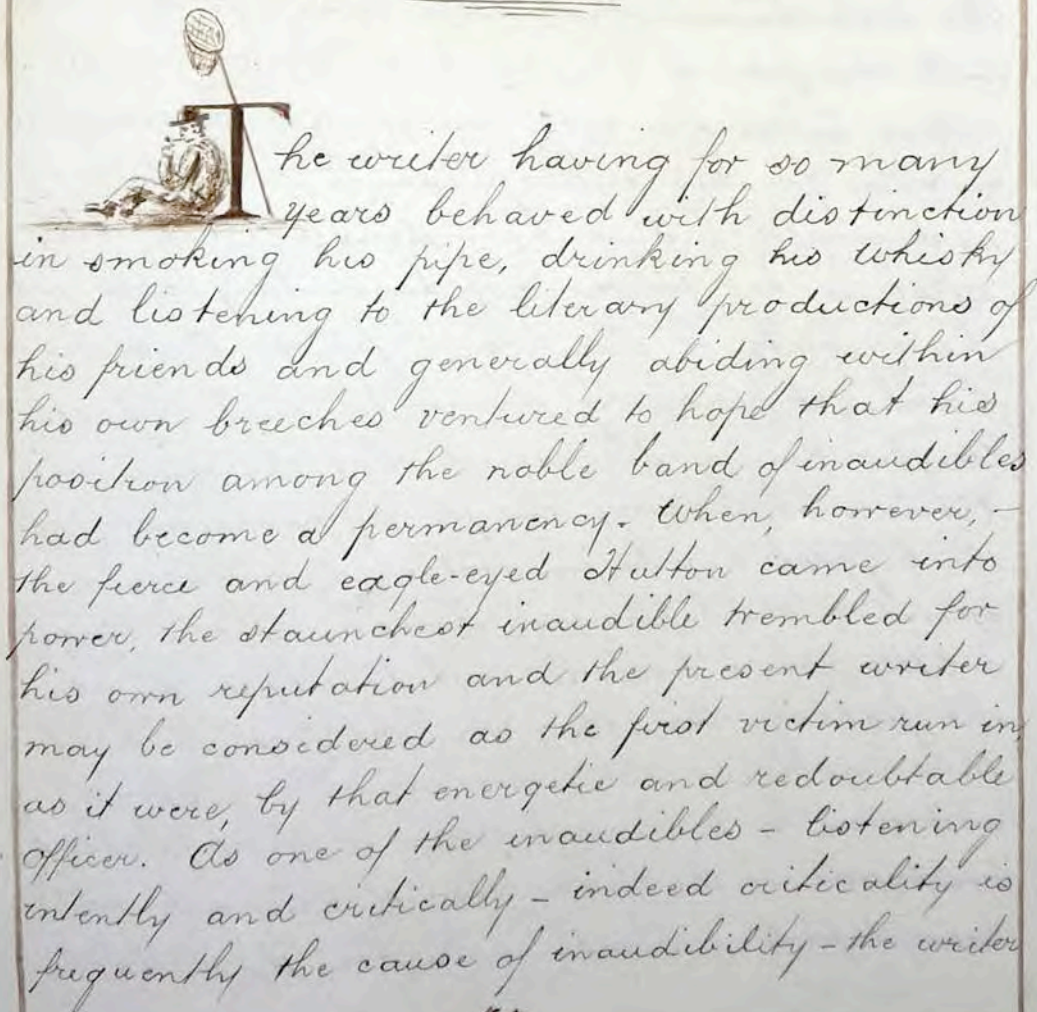 The writer having for so many
years behaved with distinction
in smoking his pipe, drinking his whisky
and listening to the literary productions of
his friends and generally abiding within
his own breeches ventured to hope that his
position among the noble band of inaudibles
had become a permanency. When, however, -
the fierce and eagle-eyed Hutton came into
power, the staunchest inaudible trembled for
his own reputation and the present writer
may be considered as the first victim run in,
as it were, by that energetic and redoubtable
officer. As one of the inaudibles - listening
intently and critically - indeed criticality is
frequently the cause of inaudibility - the writer